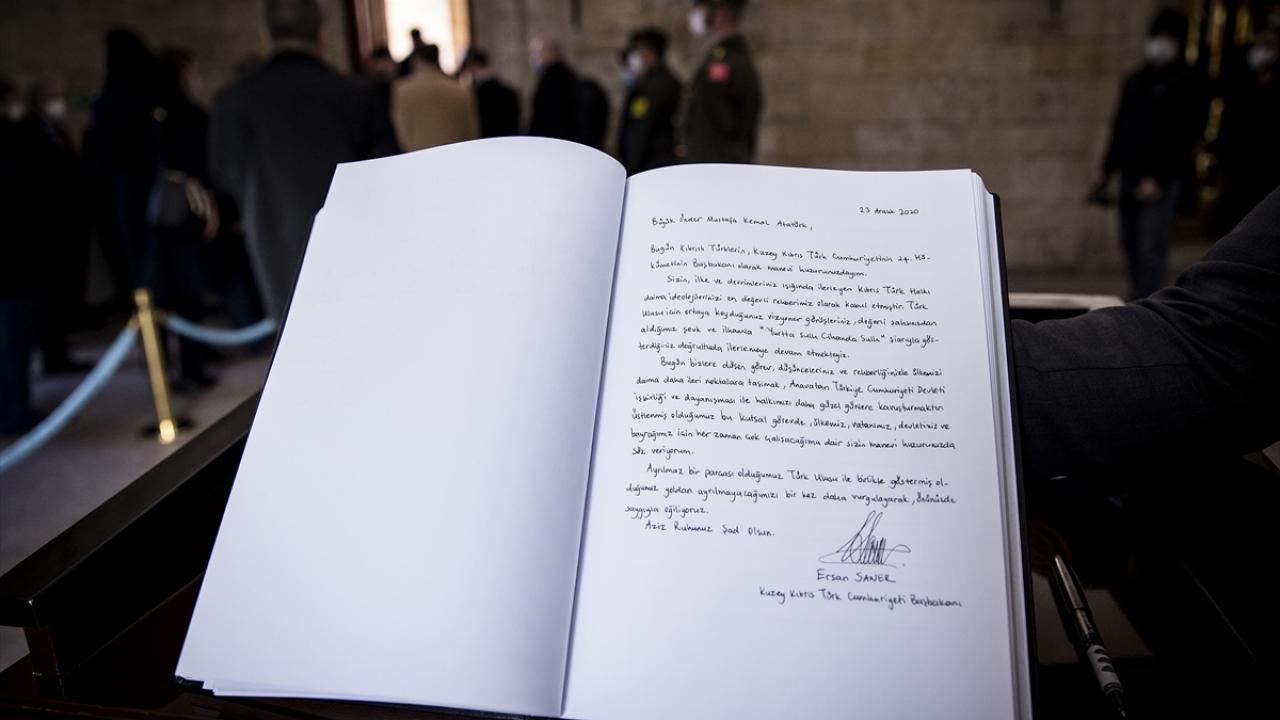 23 Aralık 2020
Büyük Önder Mustafa Kemal Atatürk,
Bugün Kıbrıslı Türklerin, Kuzey Kıbrıs Türk Cumhuriyetinin 24. Hü-
kümetinin Başbakanı olarak manevi huzurunuzdayım.
Sizin, ilke ve devrimleriniz ışığında ilerleyen Kıbrıs Türk Halkı
daima ideolojilerinizi en değerli rehberimiz olarak kabul etmiştir. Türk
Ulusu için ortaya koyduğunuz vizyoner görüşleriniz, değerli şahsınızdan
aldığımız şevk ve ilhamla "Yurtta Sulh Cihanda Sulh" şiarıyla gös-
terdiğiniz doğrultuda ilerlemeye devam etmekteyiz.
Bugün bizlere düşen görev, düşünceleriniz ve rehberliğinizle ülkemizi
daima daha ileri noktalara taşımak, Anavatan Türkiye Cumhuriyeti Devleti
işbirliği ve dayanışması ile halkımızı daha güzel günlere kavuşturmaktır.
Üstlenmiş olduğumuz bu kutsal görevde, ülkemiz, vatanımız, devletimiz ve
bayrağımız için her zaman çok çalışacağıma dair sizin manevi huzurunuzda
söz veriyorum.
Ayrılmaz bir parçası olduğumuz Türk Ulusu ile birlikte göstermiş ol-
duğunuz yoldan ayrılmayacağımızı bir kez daha vurgulayarak, önünüzde
saygıyla eğiliyoruz.
Aziz Ruhunuz Şad Olsun.
Ersan SANER
Kuzey Kıbrıs Türk Cumhuriyeti Başbakanı